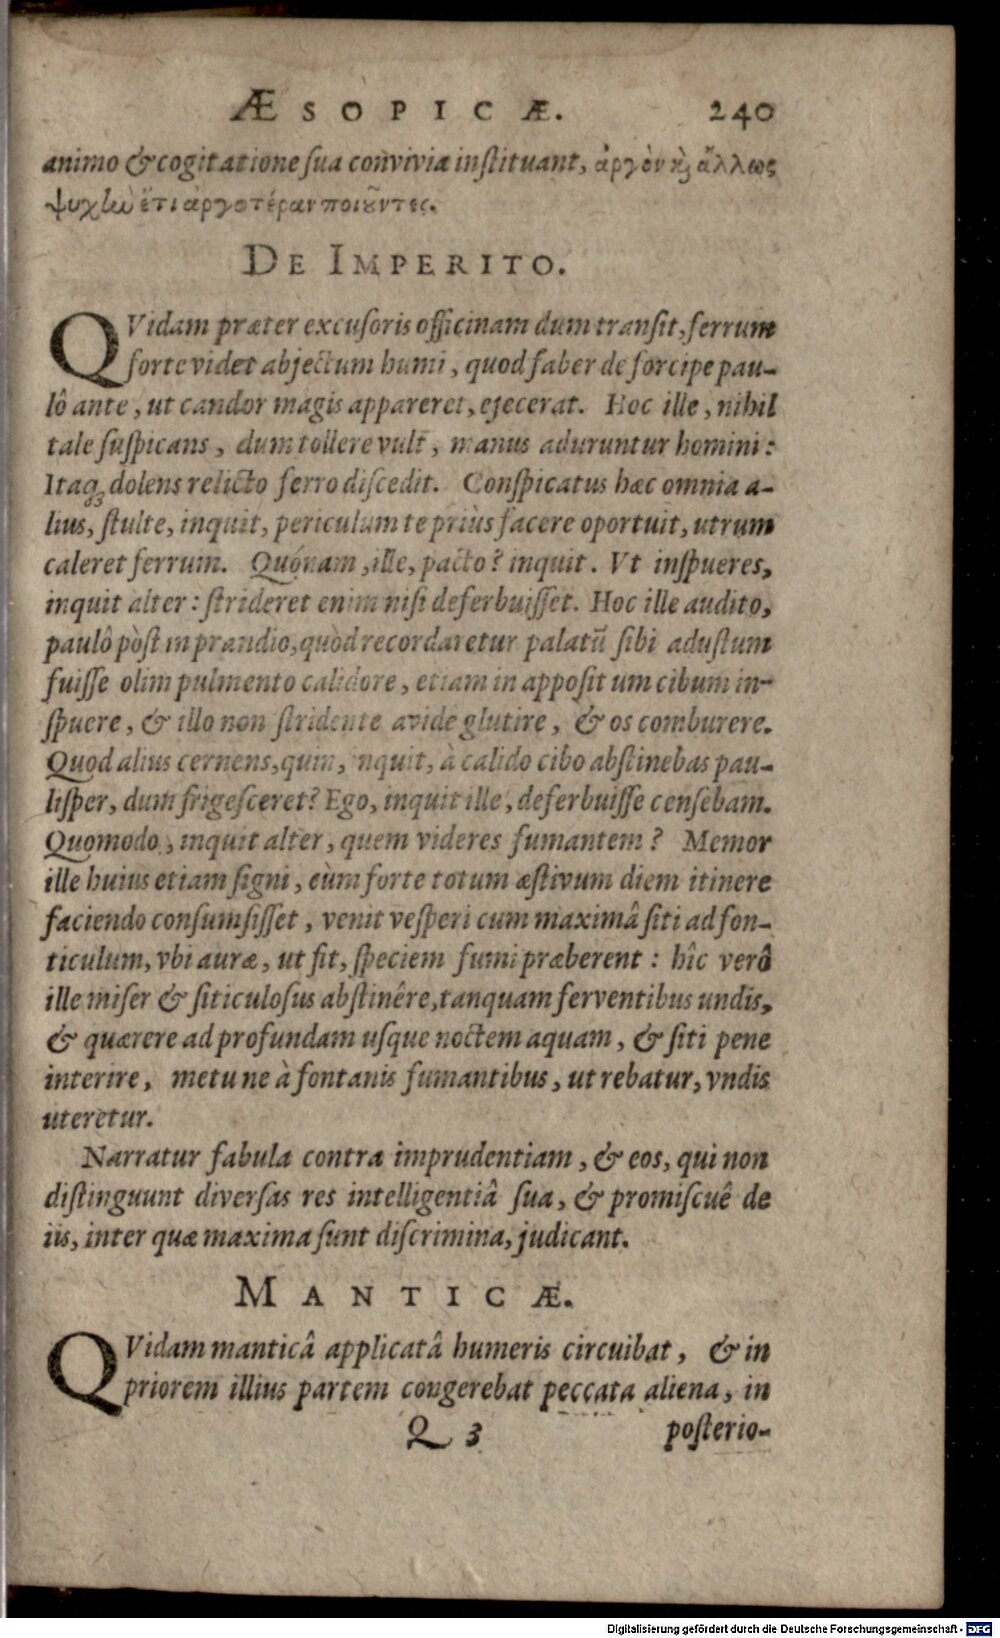 ÆSOPICÆ. 240
animo & cogitatione sua convivia instituant, ἀργὸν ϗ ἄλλως
ψυχὴν ἔτι ἀργοτέραν ποιοῦντες.
DE IMPERITO.
QVidam præter excusoris officinam dum transit, ferrum
forte videt abjectum humi, quod faber de forcipe pau-
lô ante, ut candor magis appareret, ejecerat. Hoc ille, nihil
tale suspicans, dum tollere vult, manus aduruntur homini:
Itaq; dolens relicto ferro discedit. Conspicatus hæc omnia a-
lius, stulte, inquit, periculum te priùs facere oportuit, utrum
caleret ferrum. Quónam, ille, pacto? inquit. Vt inspueres,
inquit alter: strideret enim nisi deferbuisset. Hoc ille audito,
paulô pòst in prandio, quòd recordaretur palatũ sibi adustum
fuisse olim pulmento calidore, etiam in appositum cibum in-
spuere, & illo non stridente avide glutire, & os comburere.
Quod alius cernens, quin, inquit, à calido cibo abstinebas pau-
lisper, dum frigesceret? Ego, inquit ille, deferbuisse censebam.
Quomodo, inquit alter, quem videres fumantem? Memor
ille huius etiam signi, cùm forte totum æstivum diem itinere
faciendo consumsisset, venit vesperi cum maximâ siti ad fon-
ticulum, vbi auræ, ut fit, speciem fumi præberent: hîc verô
ille miser & siticulosus abstinêre, tanquam ferventibus undis,
& quærere ad profundam usque noctem aquam, & siti pene
interire, metu ne à fontanis fumantibus, ut rebatur, vndis
uteretur.
Narratur fabula contra imprudentiam, & eos, qui non
distinguunt diversas res intelligentiâ sua, & promiscuê de
iis, inter quæ maxima sunt discrimina, judicant.
MANTICÆ.
QVidam manticâ applicatâ humeris circuibat, & in
priorem illius partem congerebat peccata aliena, in
Q 3 posterio-
Digitalisierung gefördert durch die Deutsche Forschungsgemeinschaft - DFG